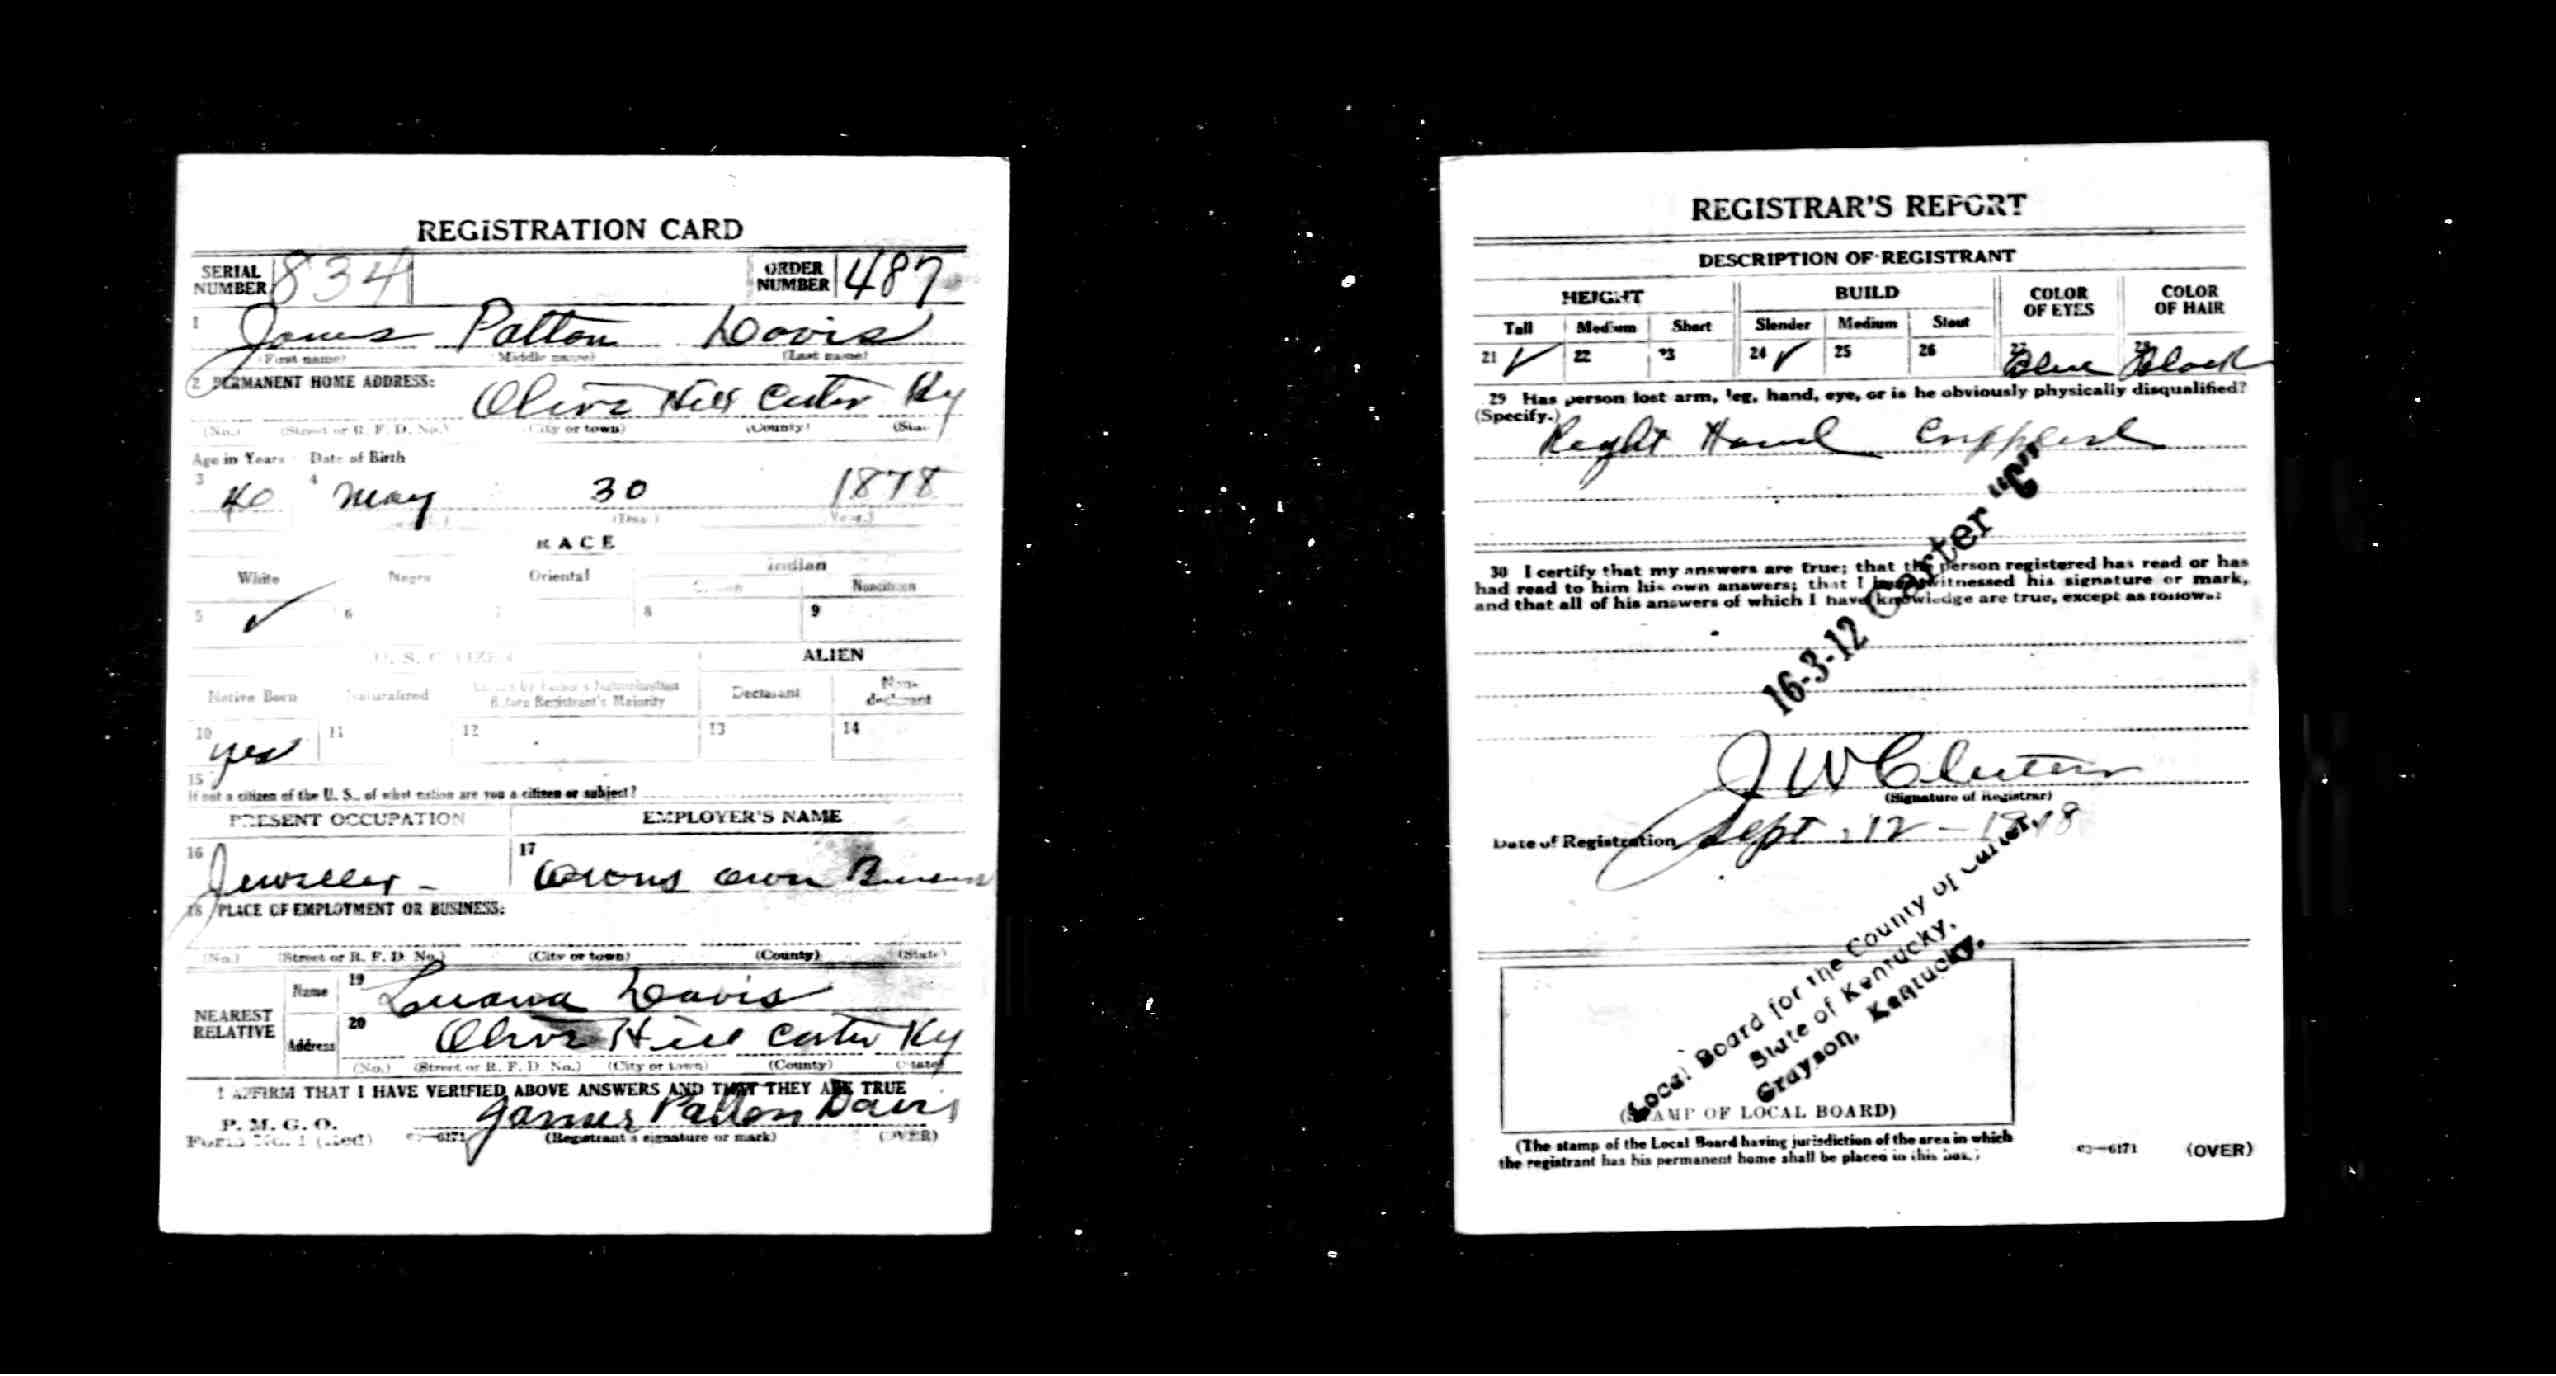 REGISTRATION CARD
SERIAL NUMBER 834
ORDER NUMBER 487
1 James Patton Davis
(First name) (Middle name) (Last name)
2 PERMANENT HOME ADDRESS:
Olive Hill Carter Ky
(No.) (Street or R. F. D. No.) (City or town) (County) (State)
Age in Years Date of Birth
3 40 4 May 30 1878
(Day.) (Year.)
RACE
White Negro Oriental Indian
Citizen Noncitizen
5 ✓ 6 7 8 9
U. S. CITIZEN ALIEN
Native Born Naturalized Citizen by Father's Naturalization Before Registrant's Majority Declarant Non-declarant
10 yes 11 12 13 14
15
If not a citizen of the U. S., of what nation are you a citizen or subject?
PRESENT OCCUPATION EMPLOYER'S NAME
16 Jeweller 17 Owns own Business
18 PLACE OF EMPLOYMENT OR BUSINESS:
(No.) (Street or R. F. D. No.) (City or town) (County) (State)
NEAREST RELATIVE
Name 19 Davis
Address 20 Olive Hill Carter Ky
(No.) (Street or R. F. D. No.) (City or town) (County) (State)
I AFFIRM THAT I HAVE VERIFIED ABOVE ANSWERS AND THAT THEY ARE TRUE
P. M. G. O.
Form No. 1 (Red) 03—6171 James Patton Davis
(Registrant's signature or mark) (OVER)
REGISTRAR'S REPORT
DESCRIPTION OF REGISTRANT
HEIGHT BUILD COLOR OF EYES COLOR OF HAIR
Tall Medium Short Slender Medium Stout
21 ✓ 22 23 24 ✓ 25 26 27 Blue 28 Black
29 Has person lost arm, leg, hand, eye, or is he obviously physically disqualified?
(Specify.) Right Hand Crippled
30 I certify that my answers are true; that the person registered has read or has
had read to him his own answers; that I have witnessed his signature or mark,
and that all of his answers of which I have knowledge are true, except as follows:
16-3-12 Carter "C"
J W
(Signature of Registrar)
Date of Registration Sept. 12 - 1918
Local Board for the County of Carter,
State of Kentucky,
Grayson, Kentucky.
(STAMP OF LOCAL BOARD)
(The stamp of the Local Board having jurisdiction of the area in which
the registrant has his permanent home shall be placed in this box.)
03—6171 (OVER)